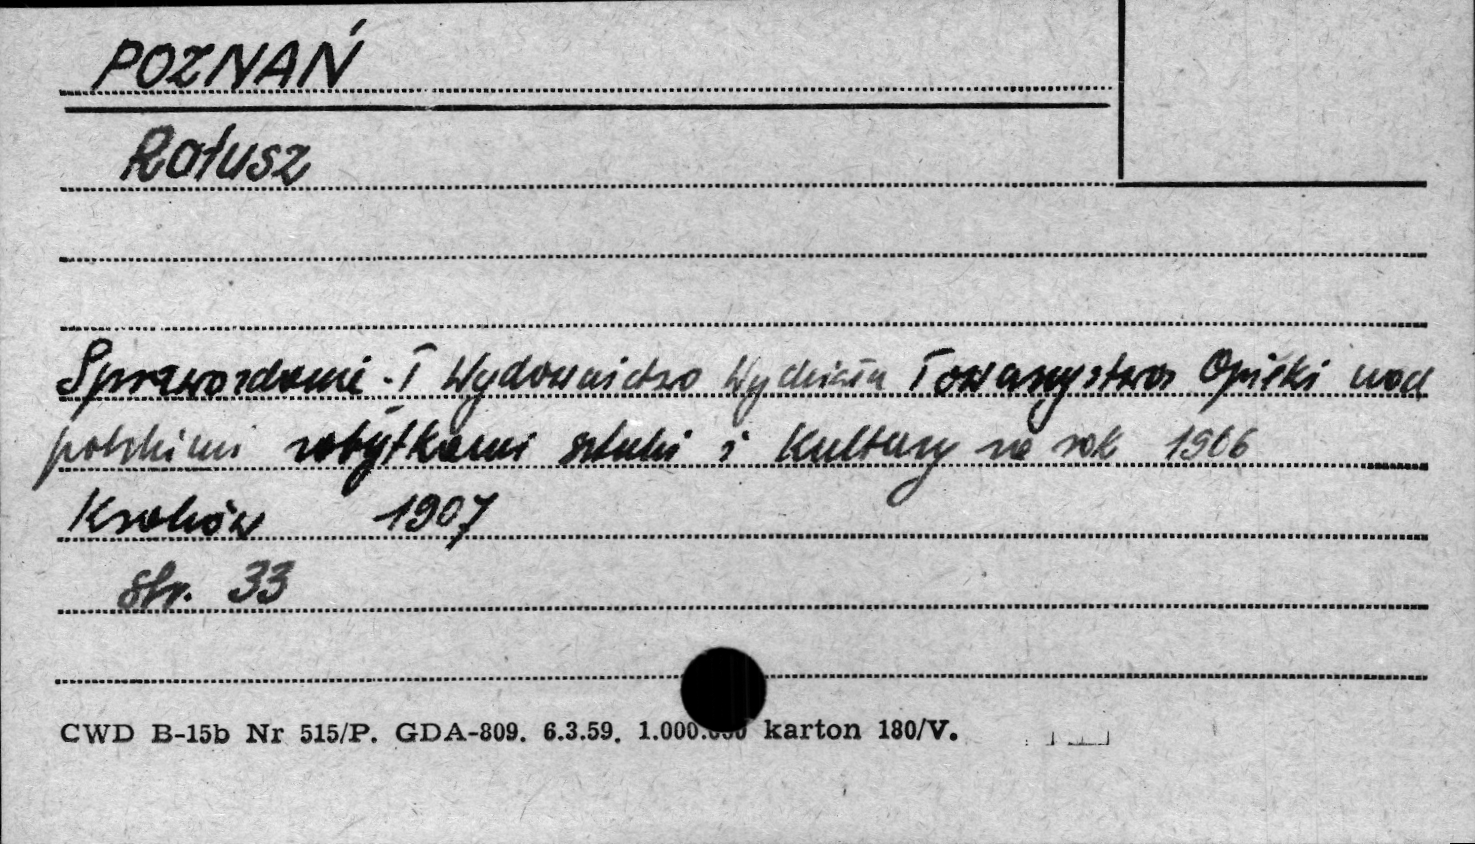 POZNAŃ
Ratusz
Sprawozdanie i Wydawnictwo Wydziału Towarzystwa Opieki nad
polskimi zabytkami sztuki i Kultury za rok 1906
Kraków 1907
str. 33
CWD B-15b Nr 515/P. GDA-809. 6.3.59. 1.000.000 karton 180/V.